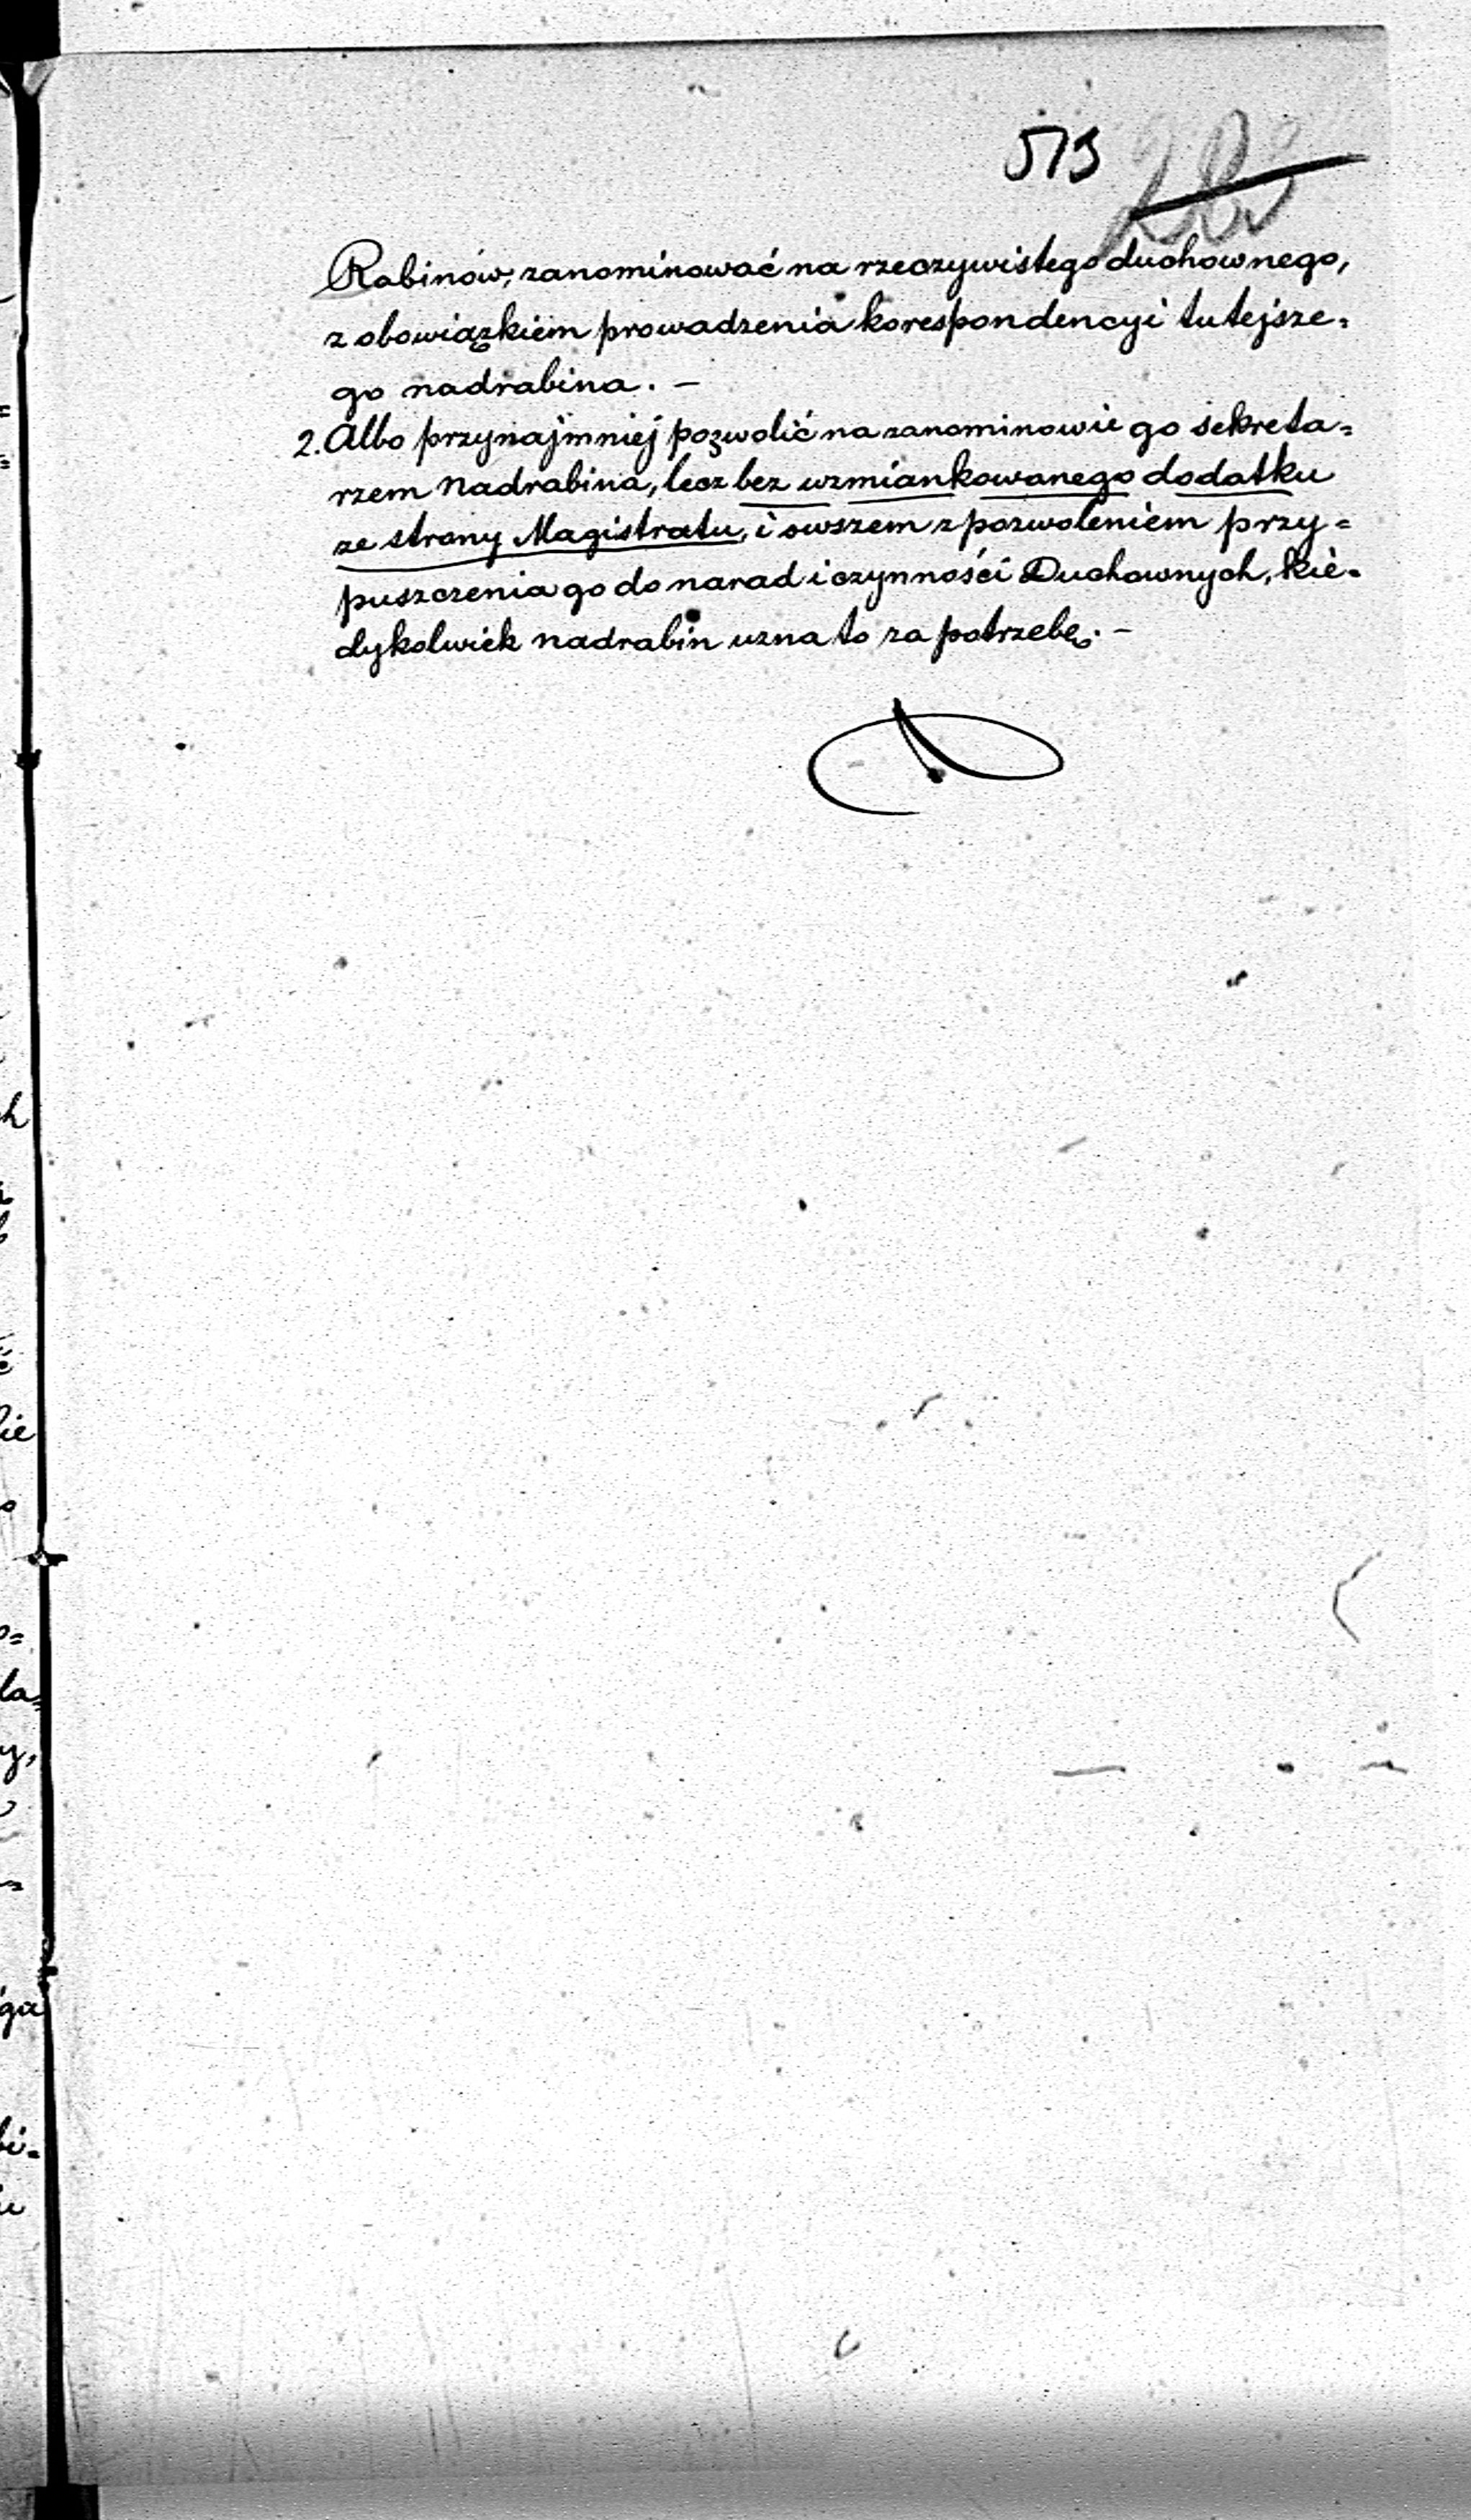 513
Rabinów, zanominować na rzeczywistego duchownego,
z obowiązkiem prowadzenia korespondencyi tutejsze=
go nadrabina. –
2. Albo przynajmniej pozwolić na zanominowie go sekreta=
rzem Nadrabina, lecz bez wzmiankowanego dodatku
ze strony Magistratu, i owszem z pozwoleniem przy=
puszczenia go do narad i czynności Duchownych, kie=
dykolwiek nadrabin uzna to za potrzebę. –